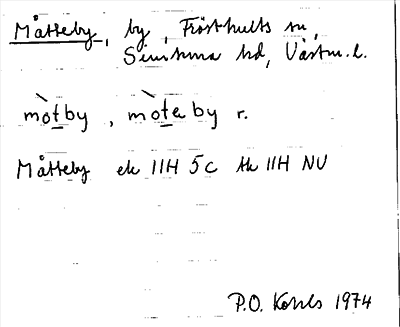 Måtteby, by, Frösthults sn,
Simtuna hd, Västm. l.
mòtby, mòtaby r.
Måtteby ek 11H 5c tk 11H NV
P.O. 1974